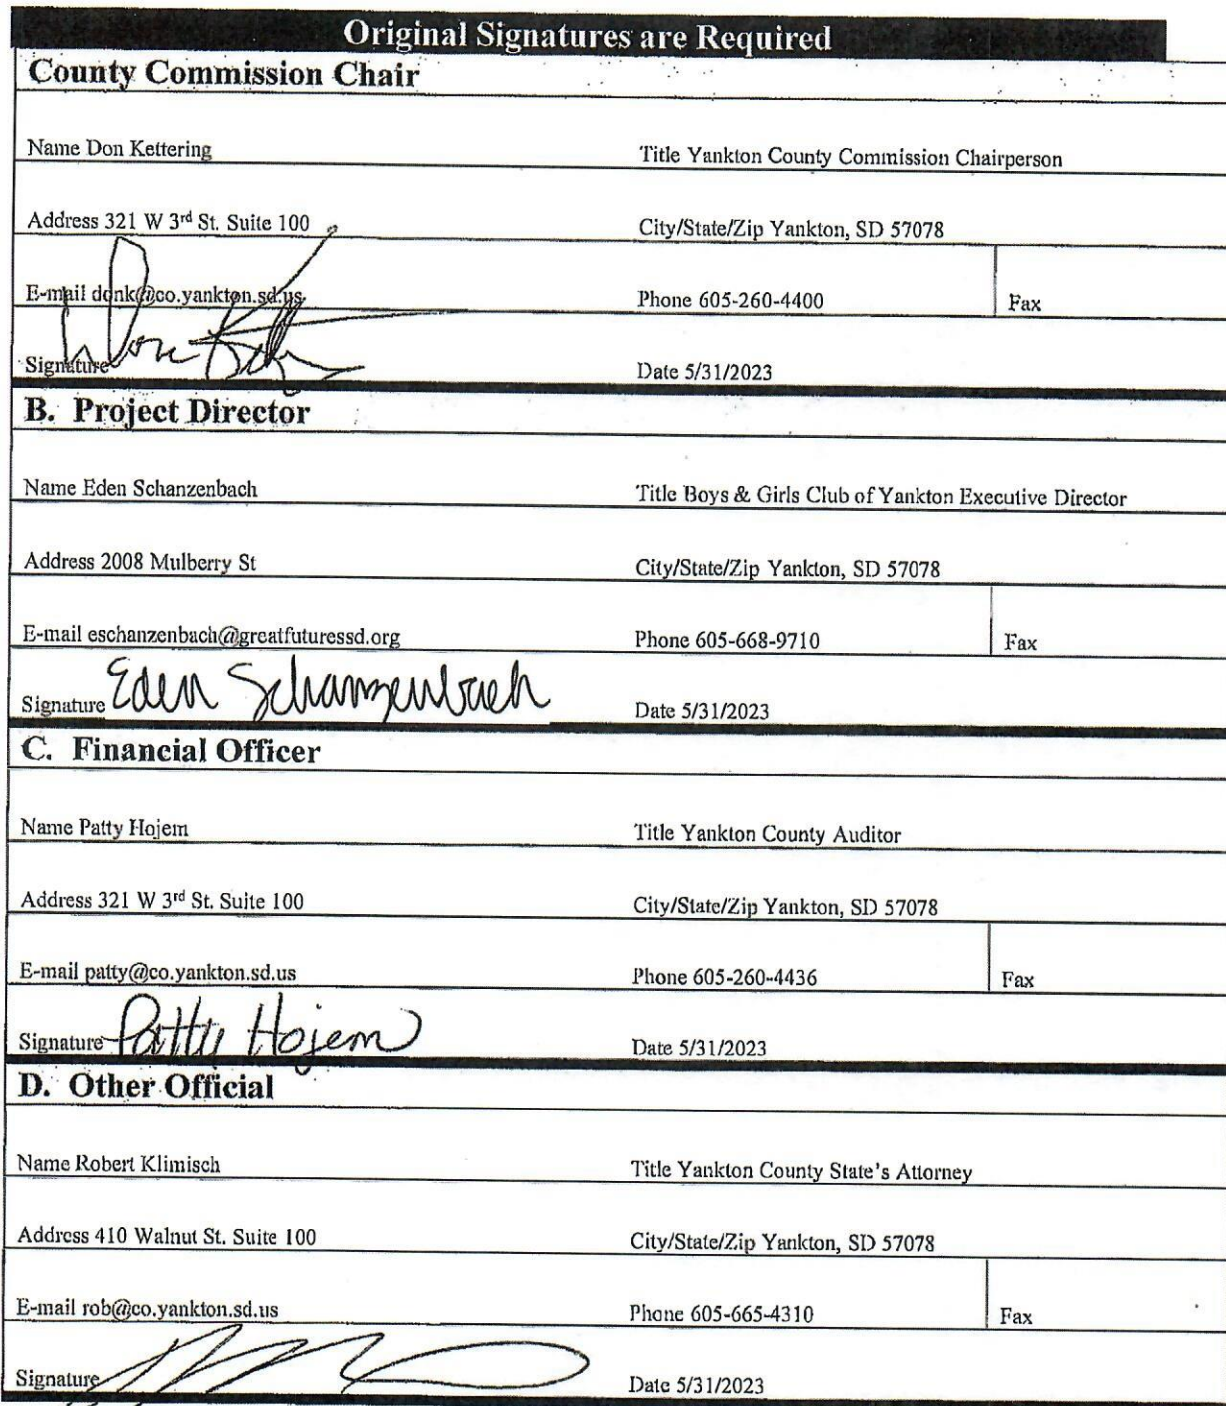 Original Signatures are Required
County Commission Chair
Name Don Kettering Title Yankton County Commission Chairperson
Address 321 W 3rd St. Suite 100 City/State/Zip Yankton, SD 57078
E-mail donk@co.yankton.sd.us Phone 605-260-4400 Fax
Signature Don Date 5/31/2023
B. Project Director
Name Eden Schanzenbach Title Boys & Girls Club of Yankton Executive Director
Address 2008 Mulberry St City/State/Zip Yankton, SD 57078
E-mail eschanzenbach@greatfuturessd.org Phone 605-668-9710 Fax
Signature Eden Schanzenbach Date 5/31/2023
C. Financial Officer
Name Patty Hojem Title Yankton County Auditor
Address 321 W 3rd St. Suite 100 City/State/Zip Yankton, SD 57078
E-mail patty@co.yankton.sd.us Phone 605-260-4436 Fax
Signature Patty Hojem Date 5/31/2023
D. Other Official
Name Robert Klimisch Title Yankton County State's Attorney
Address 410 Walnut St. Suite 100 City/State/Zip Yankton, SD 57078
E-mail rob@co.yankton.sd.us Phone 605-665-4310 Fax
Signature Date 5/31/2023